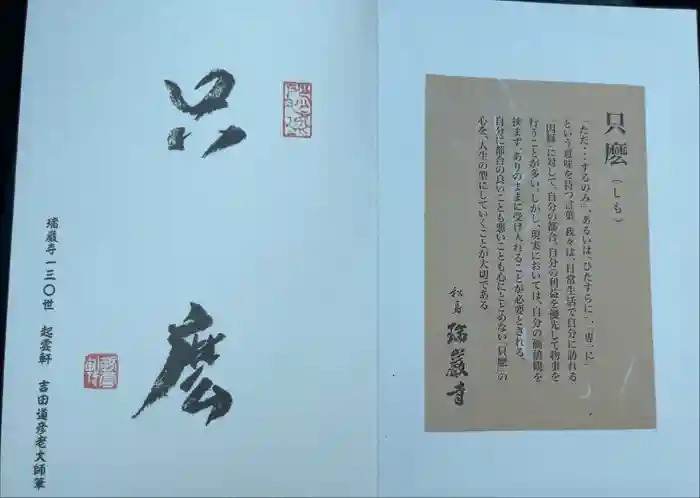 只麼（しも）
「ただ…するのみ」、あるいは、「ひたすらに」、「専一に」
という意味を持つ言葉。我々は、日常生活で自分に訪れる
「因縁」に対して、自分の都合、自分の利益を優先して物事を
行うことが多い。しかし、現実においては、自分の価値観を
挟まず、ありのままに受け入れることが必要とされる。
自分に都合の良いことも悪いことも心にとどめない「只麼」の
心を、人生の聖にしていくことが大切である
松島 瑞巌寺
只麼
瑞巌寺一三〇世 起雲軒 吉田道彦老大師筆